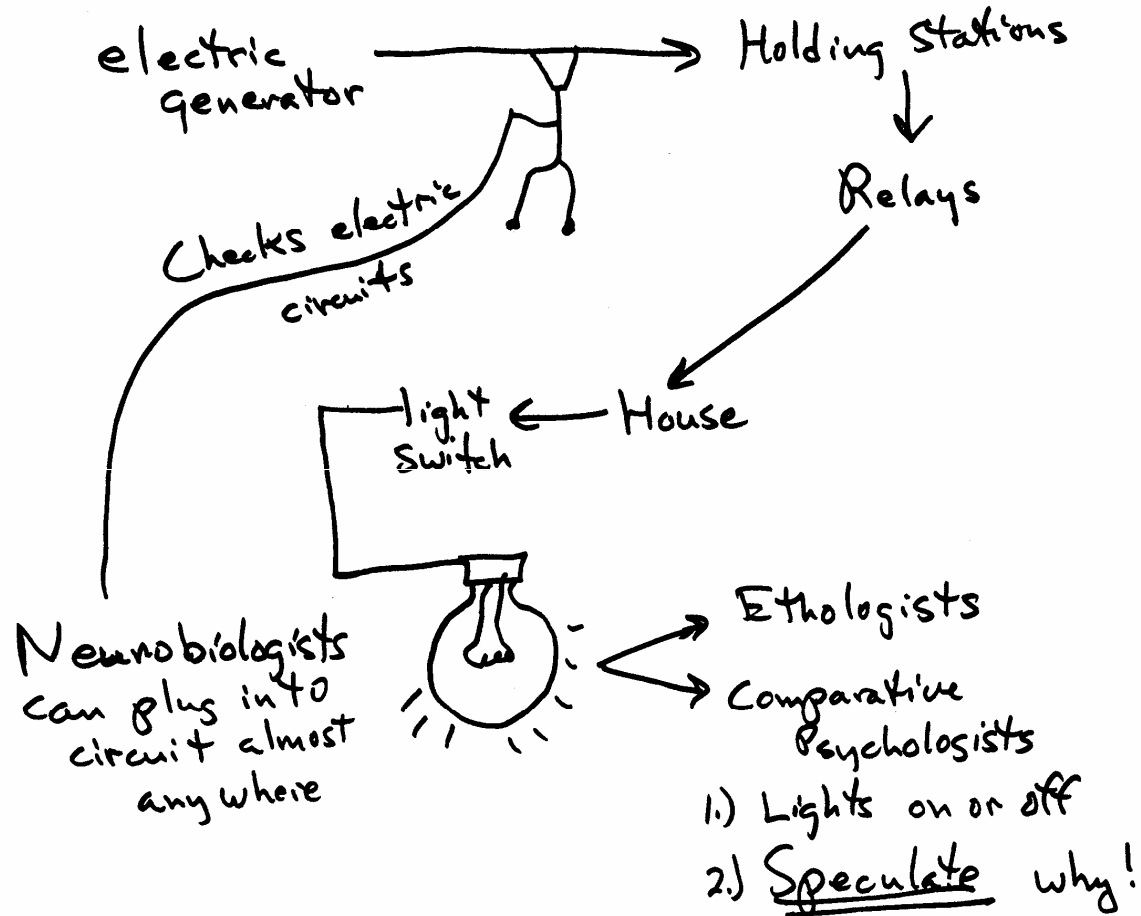 electric
generator
Holding Stations
Relays
Checks electric
circuits
House
light
switch
Neurobiologists
can plug into
circuit almost
anywhere
Ethologists
Comparative
Psychologists
1.) Lights on or off
2.) Speculate why!